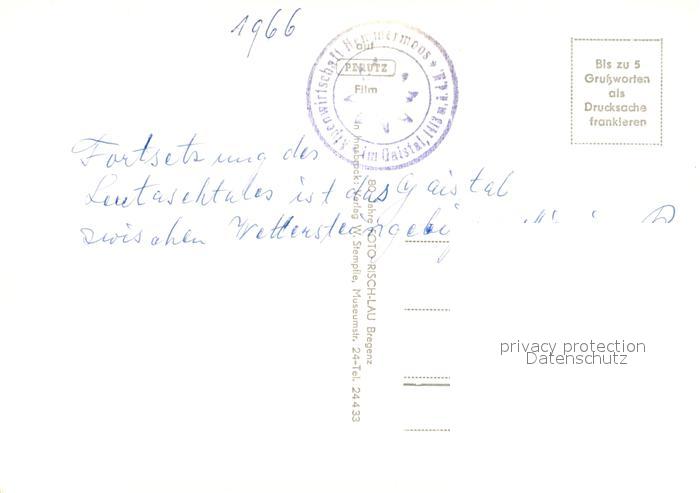 1966
Alpenwirtschaft Hämmermoos
im Gaistal,
auf
PERUTZ
Film
Bis zu 5
Grußworten
als
Drucksache
frankieren
Fortsetzung des
Leutaschtales ist das Gaistal
zwischen Wettersteingebi
80 Jahre FOTO-RISCH-LAU Bregenz
in Innsbruck: Verlag W. Stempfle, Museumstr. 24-Tel. 24433
privacy protection
Datenschutz